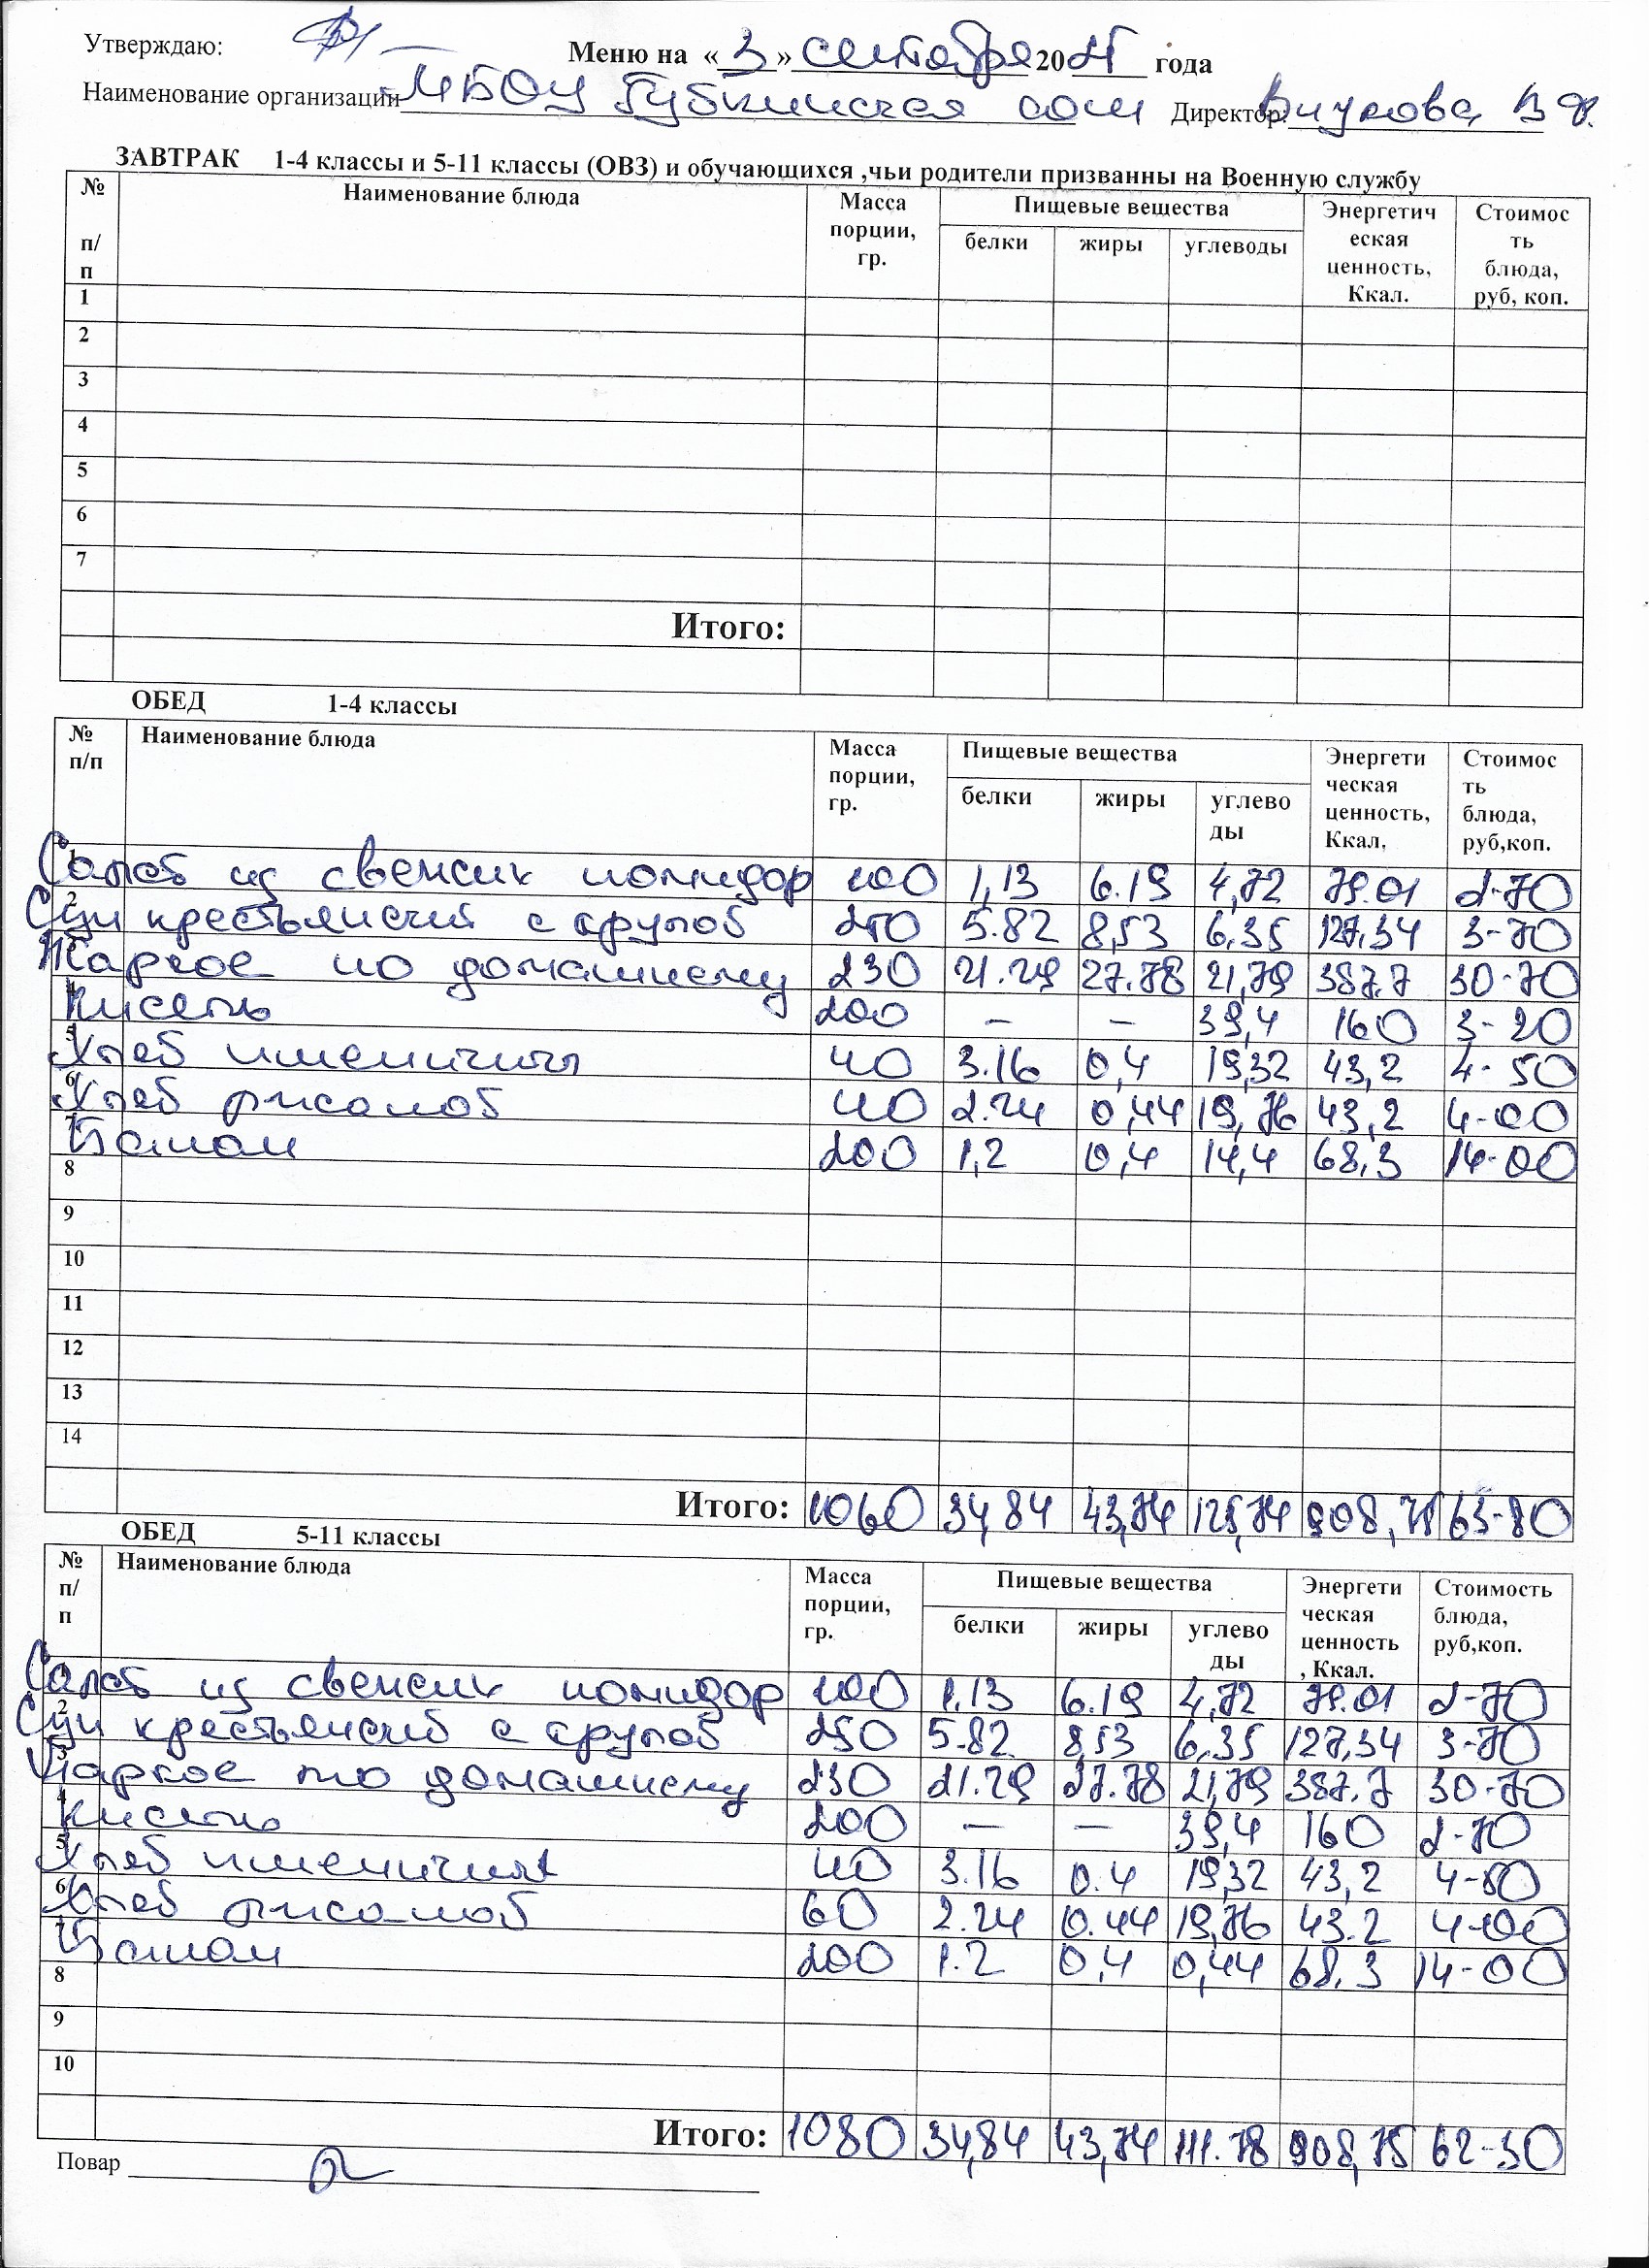 Утверждаю:
Меню на «3» сентября 2025 года
Наименование организации МБОУ Губкинская сош Директор: Внукова В Ф.
ЗАВТРАК 1-4 классы и 5-11 классы (ОВЗ) и обучающихся ,чьи родители призванны на Военную службу
№ п/п Наименование блюда Масса порции, гр. Пищевые вещества белки жиры углеводы Энергетическая ценность, Ккал. Стоимость блюда, руб, коп.
1
2
3
4
5
6
7
Итого:
ОБЕД 1-4 классы
№ п/п Наименование блюда Масса порции, гр. Пищевые вещества белки жиры углеводы Энергетическая ценность, Ккал, Стоимость блюда, руб,коп.
1 Салат из свежих помидор 100 1,13 6.19 4,72 79.01 2-70
2 Суп крестьянский с крупой 250 5.82 8,53 6,35 127,34 3-70
3 Жаркое по домашнему 230 21.29 27.78 21,79 387.7 30-70
4 Кисель 200 – – 39,4 160 3-20
5 Хлеб пшеничны 40 3.16 0,4 19,32 43,2 4-50
6 Хлеб ржаной 40 2.24 0,44 19,76 43,2 4-00
7 Банан 200 1,2 0,4 14,4 68,3 14-00
8
9
10
11
12
13
14
Итого: 1060 34,84 43,74 125,74 908,75 63-80
ОБЕД 5-11 классы
№ п/п Наименование блюда Масса порции, гр. Пищевые вещества белки жиры углеводы Энергетическая ценность, Ккал. Стоимость блюда, руб,коп.
1 Салат из свежих помидор 100 1,13 6.19 4,72 79.01 2-70
2 Суп крестьянский с крупой 250 5.82 8,53 6,35 127,34 3-70
3 Жаркое по домашнему 230 21.29 27.78 21,79 387.7 30-70
4 Кисель 200 – – 39,4 160 2-70
5 Хлеб пшеничны 40 3.16 0.4 19,32 43,2 4-50
6 Хлеб ржаной 60 2.24 0.44 19,76 43.2 4-00
7 Банан 200 1.2 0,4 0,44 68.3 14-00
8
9
10
Итого: 1080 34,84 43,74 111.78 908,75 62-30
Повар